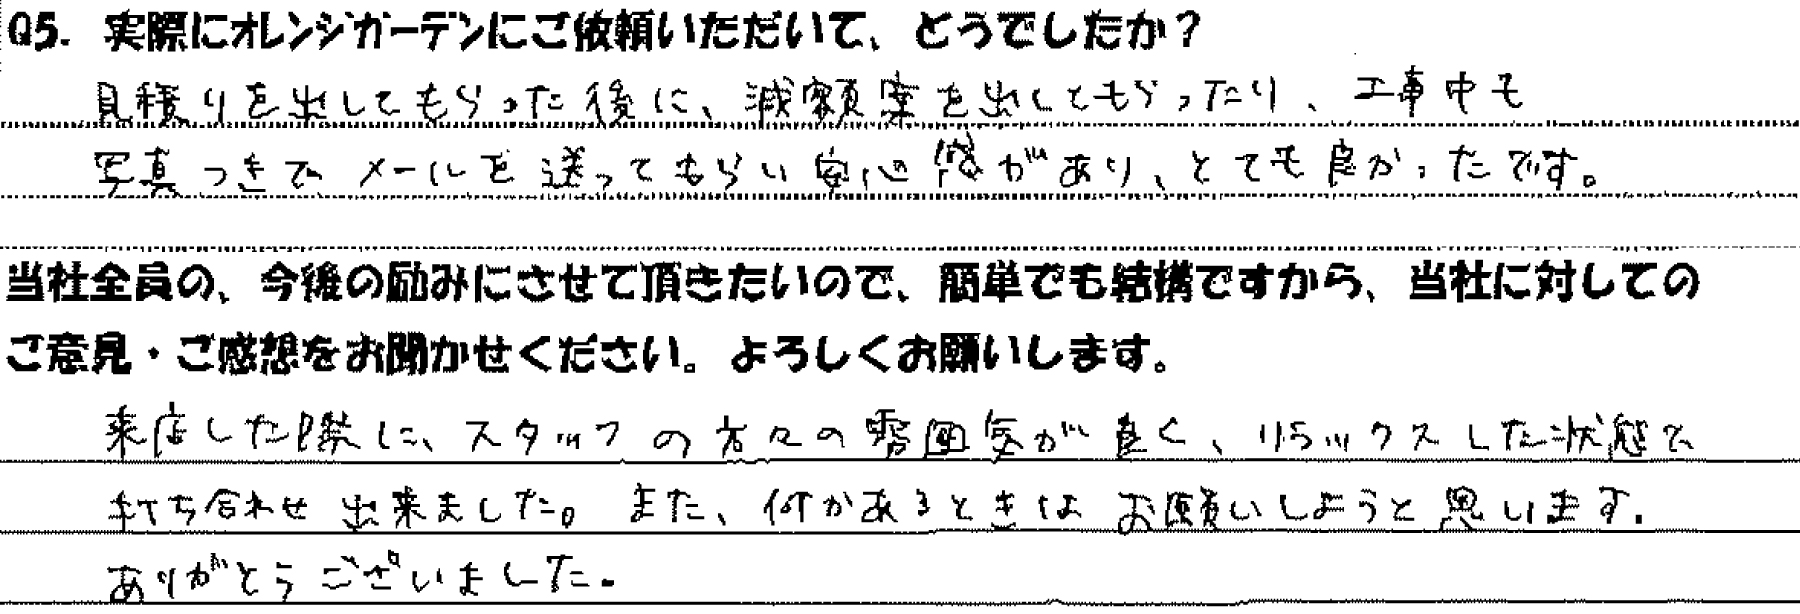 Q5. 実際にオレンジガーデンにご依頼いただいて、どうでしたか？
見積りを出してもらった後に、減額案を出してもらったり、工事中も
写真つきでメールを送ってもらい安心感があり、とても良かったです。
当社全員の、今後の励みにさせて頂きたいので、簡単でも結構ですから、当社に対しての
ご意見・ご感想をお聞かせください。よろしくお願いします。
来店した際に、スタッフの方々の雰囲気が良く、リラックスした状態で
打ち合わせ出来ました。また、何かあるときはお願いしようと思います.
ありがとうございました.